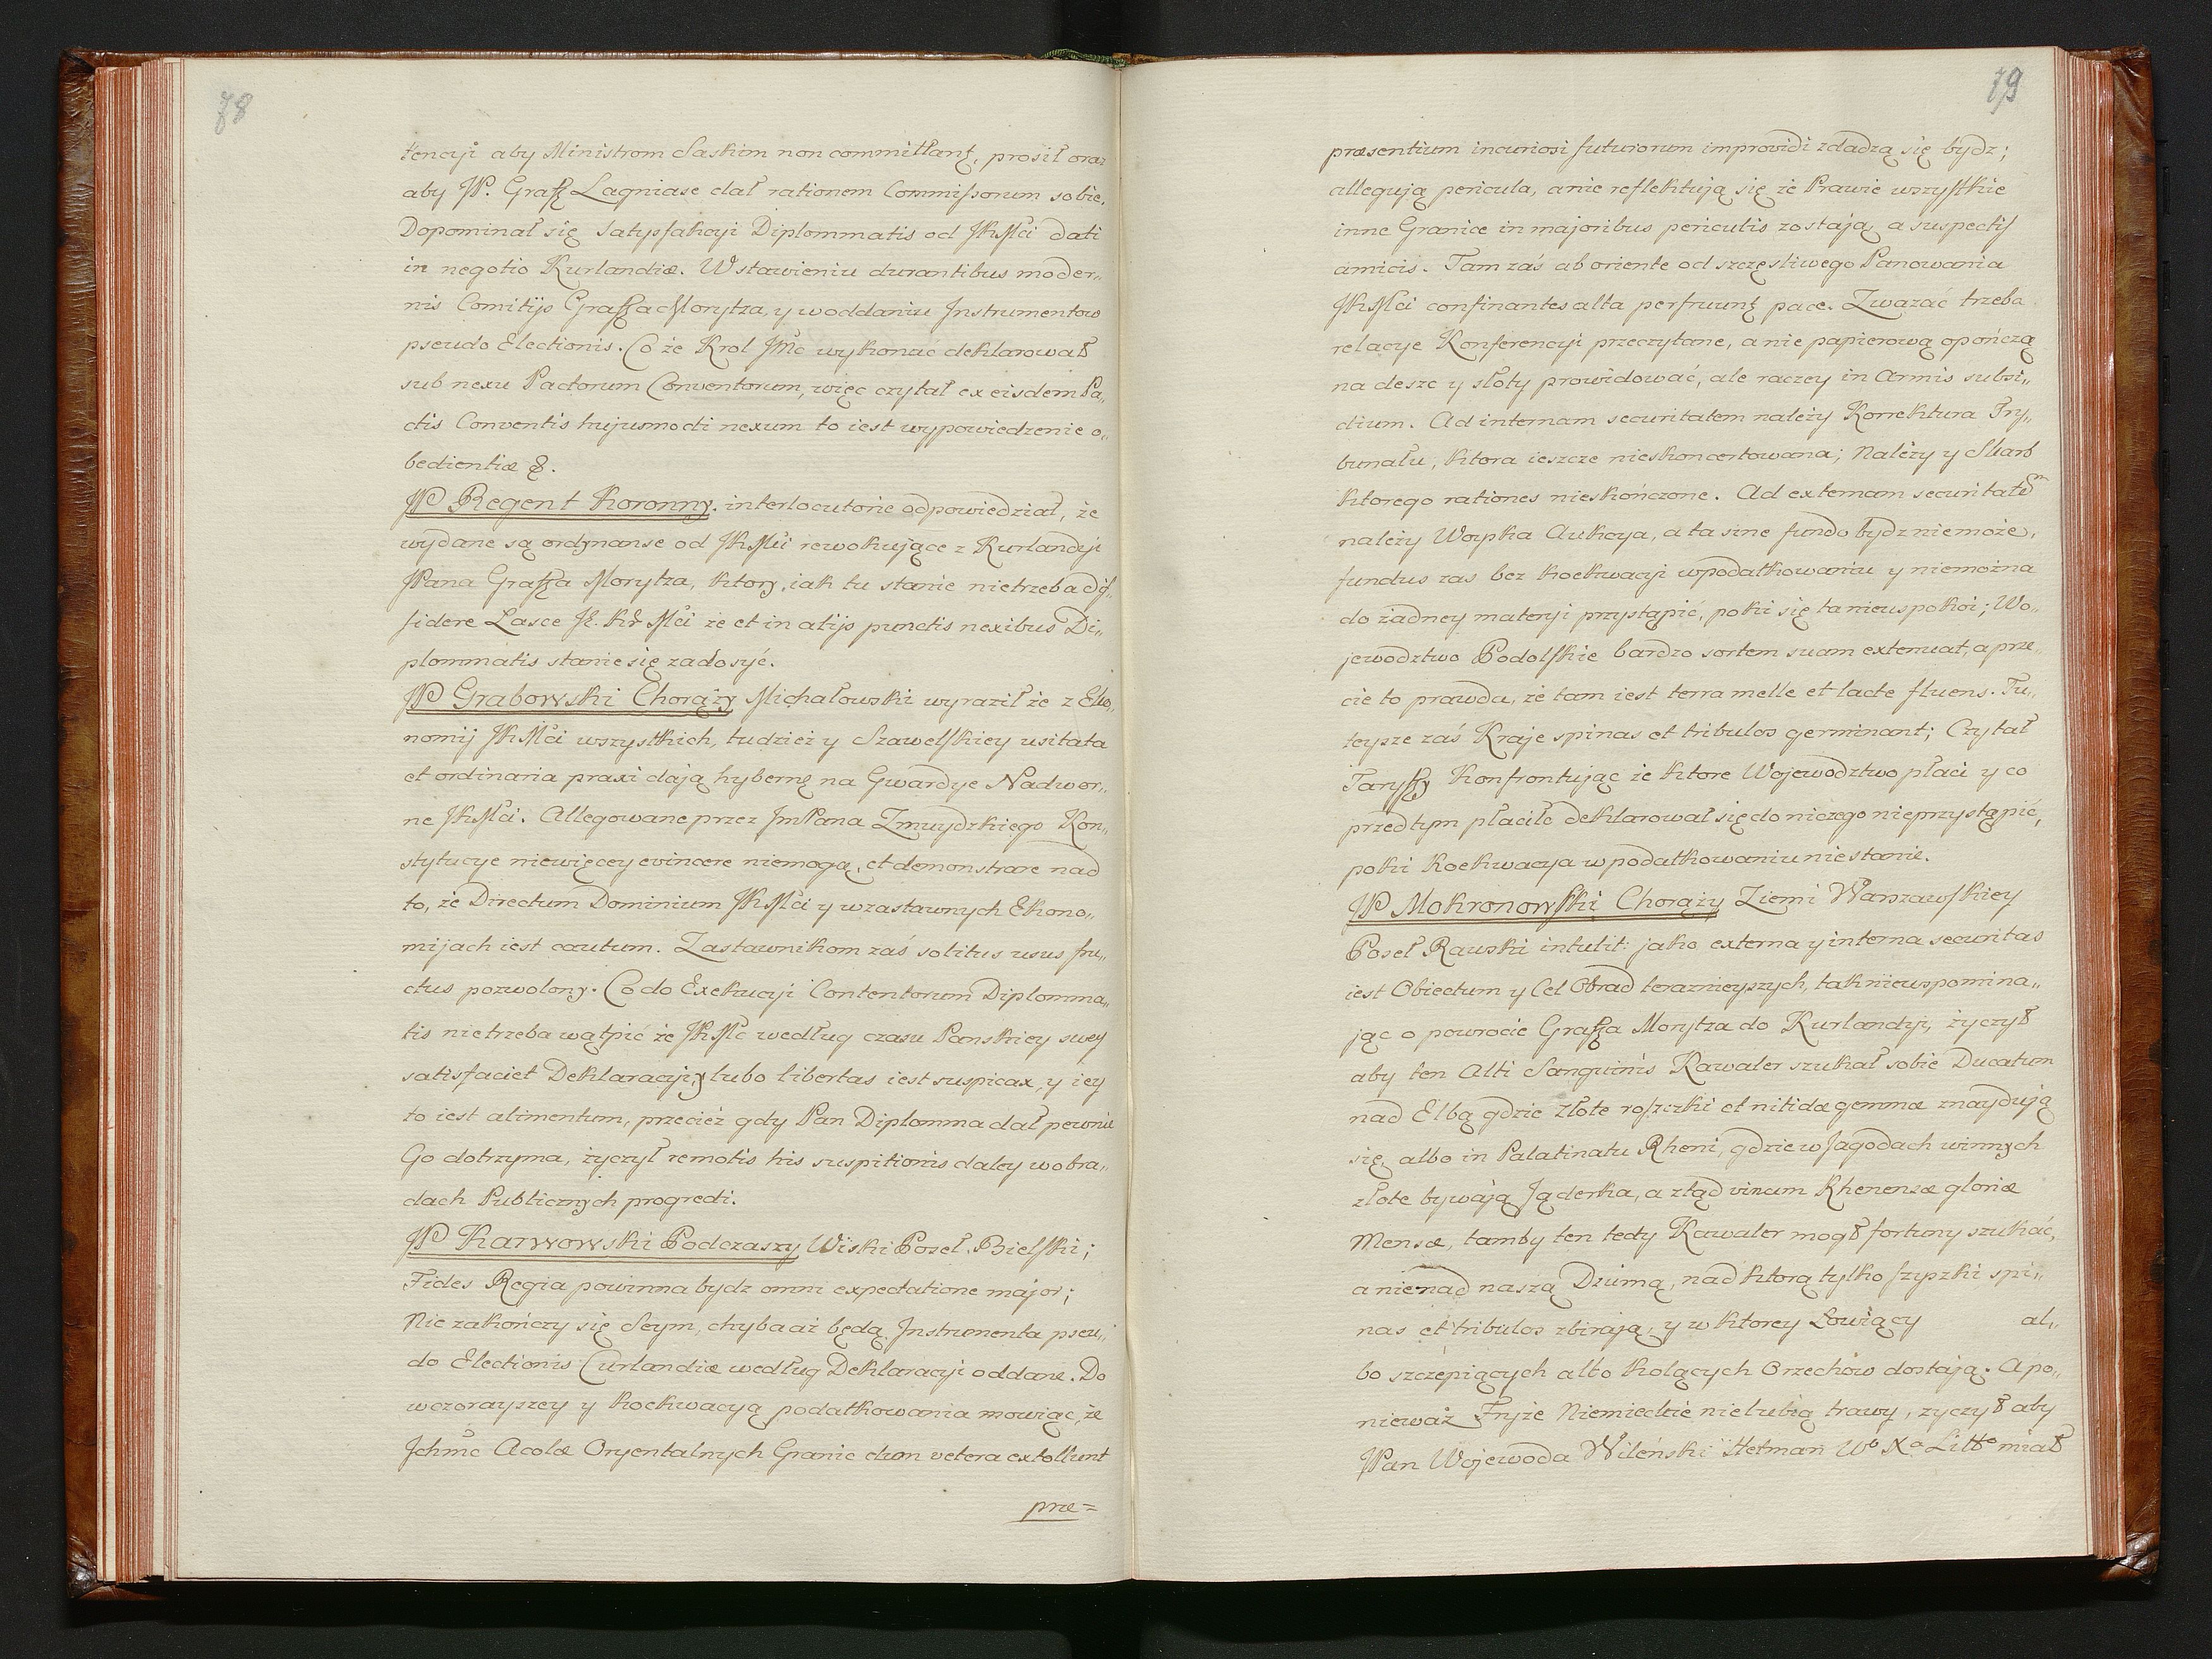 78
tencyi aby Ministrom Saskim non committant, prosił oraz
aby JP. Graff Lagniase dał rationem Commissorum sobie.
Dopominał się Satysfakcyi Diplommatis od JKMci dati
in negotio Kurlandiæ. W stawieniu durantibus moder„
nis Comitijs Graffa Morytza, y woddaniu Jnstrumentow
pseudo Electionis. Co że Krol JMć wykonać deklarował
sub nexu Pactorum Conventorum, więc czytał ex eisdem Pa„
ctis Conventis hujusmodi nexum to iest wypowiedzenie o„
bedientiæ &.
JP Regent Koronny. interlocutorie odpowiedział, że
wydane są ordynanse od JKMci rewokujące z Kurlandyi
JPana Graffa Morytza, ktory, iak tu stanie nietrzeba dif„
fidere Lasce J. Kr Mci że et in alijs punctis nexibus Di„
plommatis stanie się zadosyć.
JP Grabowski Chorąży Michałowski wyraził że z Eko„
nomij JKMci wszystkich, tudzież y Szawelskiey usitata
et ordinaria praxi dają hybernę na Gwardye Nadwor„
ne JKMci. Allegowane przez JmPana Zmuydzkiego Kon„
stytucye niewięcey evincere niemogą, et demonstrare nad
to, że Directum Dominium JKMci y wzastawnych Ekono„
mijach iest cautum. Zastawnikom zaś solitus usus fru„
ctus pozwolony. Co do Exekucyi Contentorum Diplomma„
tis nietrzeba wątpić że JKMć według czasu Panskiey swey
satisfaciet Deklaracyi, y lubo libertas iest suspicax, y iey
to iest alimentum, przecież gdy Pan Diplomma dał pewnie
Go dotrzyma, życzył remotis his suspitionis daley wobra„
dach Publicznych progredi.
JP Karwowski Podczaszy Wiski Poseł Bielski;
Fides Regia powinna bydz omni expectatione major;
Nie zakończy się Seym, chyba aż będą Jnstrumenta pseu„
do Electionis Curlandiæ według Deklaracyi oddane. Do
wczorayszey y koekwacyą podatkowania mowiąc, że
Jchmć Acolæ Oryentalnych Granic dum vetera extollunt
præ=
79
præsentium incuriosi futurorum improvidi zdadzą się bydz;
allegują pericula, a nie reflektują się że Prawie wszystkie
inne Granice in majoribus periculis zostają, a suspectis
amicis. Tam zaś ab oriente od szczęsliwego Panowania
JKMci confinantes alta perfruunt pace. Zwazać trzeba
relacye Konferencyi przeczytane, a nie papierową opończą
na deszc y słoty prowidować, ale raczey in Armis subsi„
dium. Ad internam securitatem należy Korrektura Try„
bunału, ktora ieszcze nieskoncertowana; Należy y Skarb
ktorego rationes nieskończone. Ad externam securitatem
należy Woyska Aukcya, a ta sine fundo bydz niemoże,
fundus zas bez koekwacyi wpodatkowaniu y niemożna
do żadney materyi przystąpić, poki się ta nieuspokoi; Wo„
jewodztwo Podolskie bardzo sortem suam extenuat, a prze„
cie to prawda, że tam iest terra melle et lacte fluens. Tu„
teysze zaś Kraje spinas et tribulos germinant; Czytał
Taryffy Konfrontując że ktore Wojewodztwo płaci y co
przedtym płaciło deklarował się do niczego nieprzystąpić,
poki Koekwacya wpodatkowaniu niestanie.
JP Mokronowski Chorąży Ziemi Warszawskiey
Poseł Rawski intulit: jako externa y interna securitas
iest Obiectum y Cel Obrad terazneyszych, tak niewspomina„
jąc o powrocie Graffa Morytza do Kurlandyi, życzył
aby ten Alti Sanguinis Kawaler szukał sobie Ducatum
nad Elbą gdzie złote roszczki et nitidæ gemmæ znaydują
się, albo in Palatinatu Rheni, gdzie w Jagodach winnych
złote bywają Jąderka, a ztąd vinum Rhenensæ gloriæ
Mensæ, tamby ten tedy Kawaler mogł fortuny szukać,
a nie nad naszą Dźwiną, nad ktorą tylko szyszki spi„
nas et tribulos zbirają, y w ktorey Łowiący al„
bo szczepiących albo kolących Orzechow dostają. A po„
nieważ Fryże Niemieckie nielubią trawy, życzył aby
JPan Wojewoda Wileński Hetman Wo Xo Litto miał